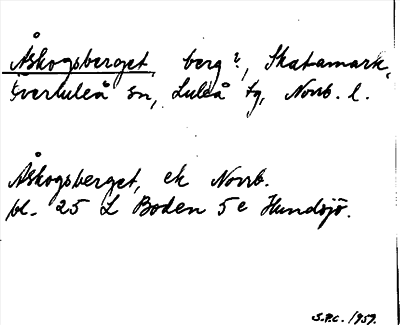 Åskogsberget, berg?, Skatamark,
Överluleå sn, Luleå tg, Norrb. l.
Åskogsberget, ek Norrb.
bl. 25 L Boden 5e Hundsjö.
S.P.C. 1959.